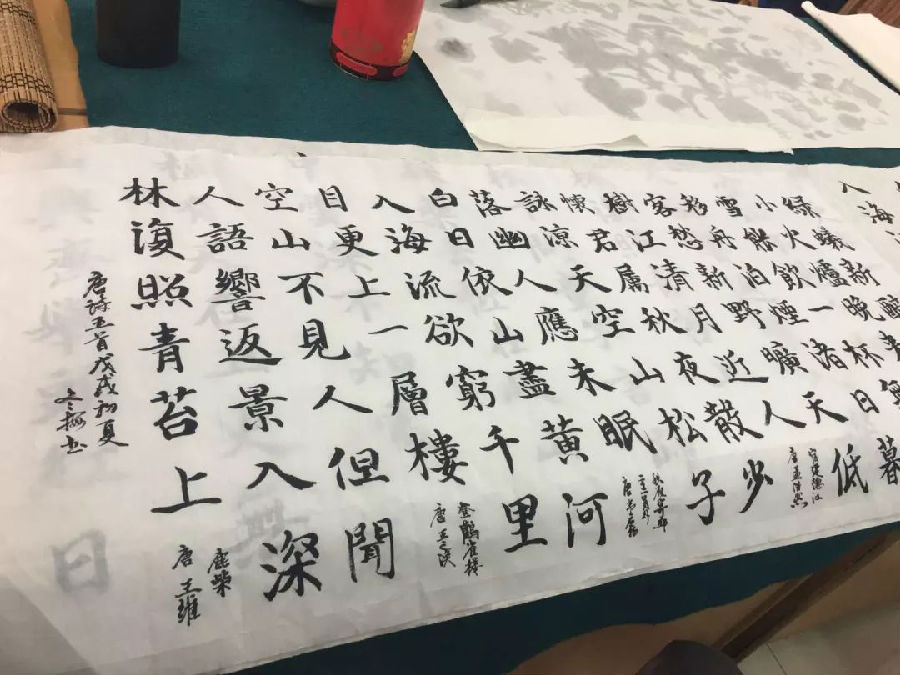 綠蟻新醅
小火爐晚來
雪能飲一杯無
移舟泊煙渚日暮
客愁新野曠天低
樹江清月近人
宿建德江
唐孟浩然
懷君屬秋夜散步
詠涼天空山松子
落幽人應未眠
秋夜寄丘
二十二員外
唐韋應物
白日依山盡黃河
入海流欲窮千里
目更上一層樓
登鸛雀樓
唐王之渙
空山不見人但聞
人語響返景入深
林復照青苔上
鹿柴
唐王維
唐詩五首戊戌初夏